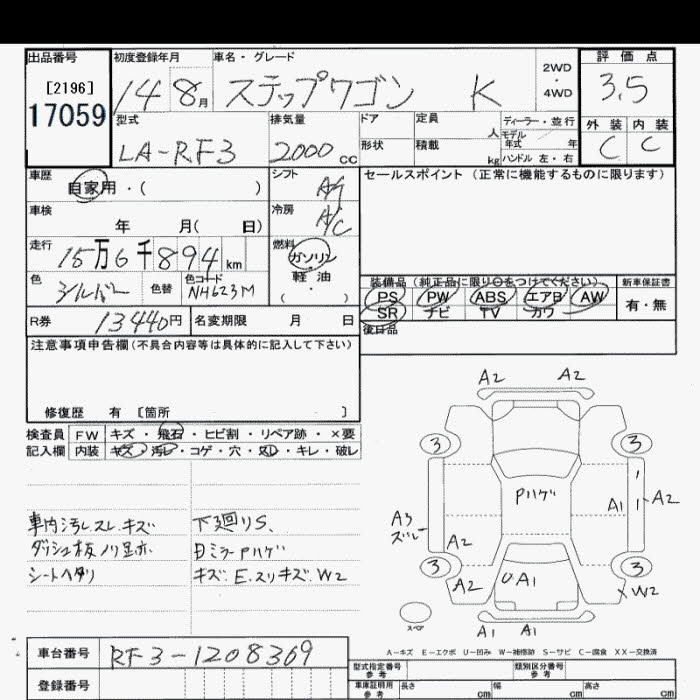 出品番号
[2196]
17059
初度登録年月
14 8月
車名・グレード
ステップワゴン K
2WD
・
4WD
評価点
3.5
外装 内装
C C
型式
LA-RF3
排気量
2000 cc
ドア
形状
定員
人
積載
kg
ディーラー・並行
モデル
年式 年
ハンドル 左・右
車歴
自家用・( )
シフト
車検
年 月( 日)
冷房
A/C
走行
15万6千894km
燃料
ガソリン
軽・油
( ・ )
色
シルバー
色替
色コード
NH623M
R券
13440円
名変期限 月 日
セールスポイント(正常に機能するものに限ります)
装備品(純正品に限り○をつけてください)
PS PW ABS エアB AW
SR ナビ TV カワ
新車保証書
有・無
後日品
注意事項申告欄(不具合内容等は具体的に記入して下さい)
修復歴 有 [箇所 ]
検査員
記入欄
FW キズ・飛石・ヒビ割・リペア跡・×要
内装 キズ・汚レ・コゲ・穴・凹・キレ・破レ
車内汚レ.スレ.キズ
ダッシュ板ノリ足赤.
シートヘタリ
下廻りS、
日ミラーPハゲ
キズ.E.スリキズ.W2
A2 A2
3 3
Pハゲ
A1 A2
A3
ズレ
A2
3 3
A2 A1
XW2
スペア
A1 A1
A-キズ E-エクボ U-凹み W-補修跡 S-サビ C-腐食 XX-交換済
車台番号
RF3-1208369
登録番号
型式指定番号
参考
類別区分番号
参考
車庫証明用
参考
長さ cm
幅 cm
高さ cm